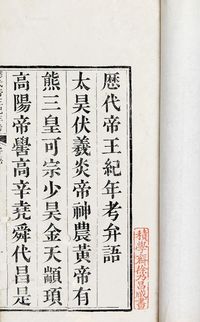 歷代帝王紀年考弁語
太昊伏羲炎帝神農黃帝有
熊三皇可宗少昊金天顓頊
高陽帝嚳高辛堯舜代昌是
積學齋徐乃昌藏書